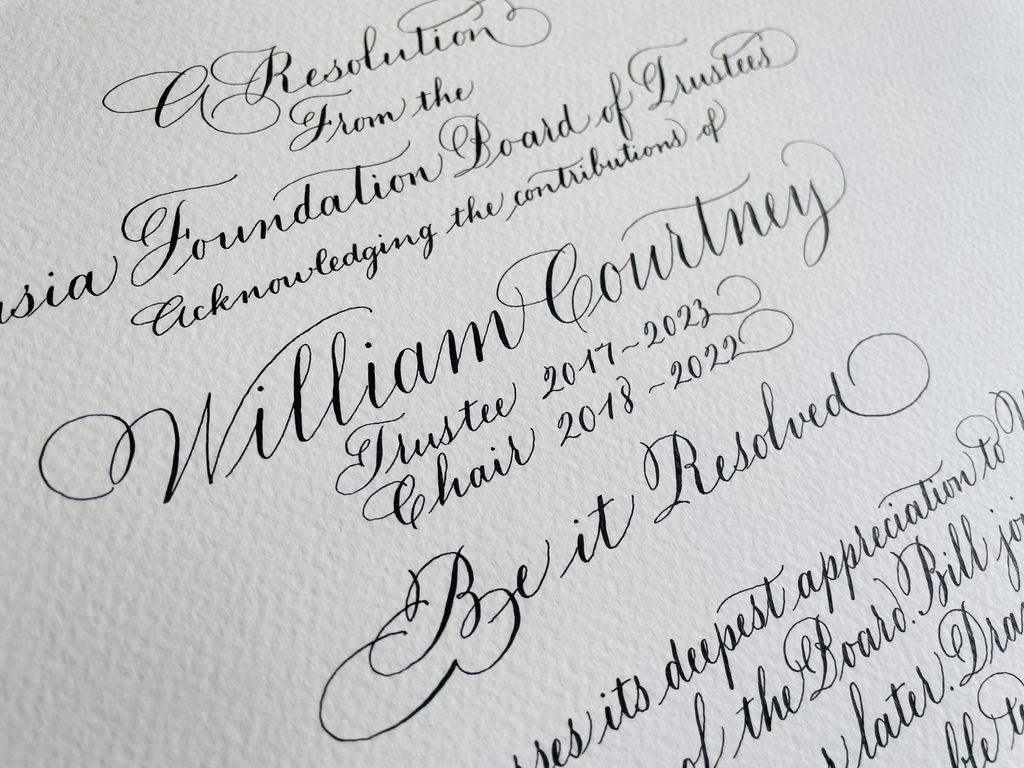 A Resolution
From the
asia Foundation Board of Trustees
Acknowledging the contributions of
William Courtney
Trustee 2017~2023
Chair 2018~2022
Be it Resolved
sses its deepest appreciation to W
of the Board. Bill joi
s later. Dra
ble t